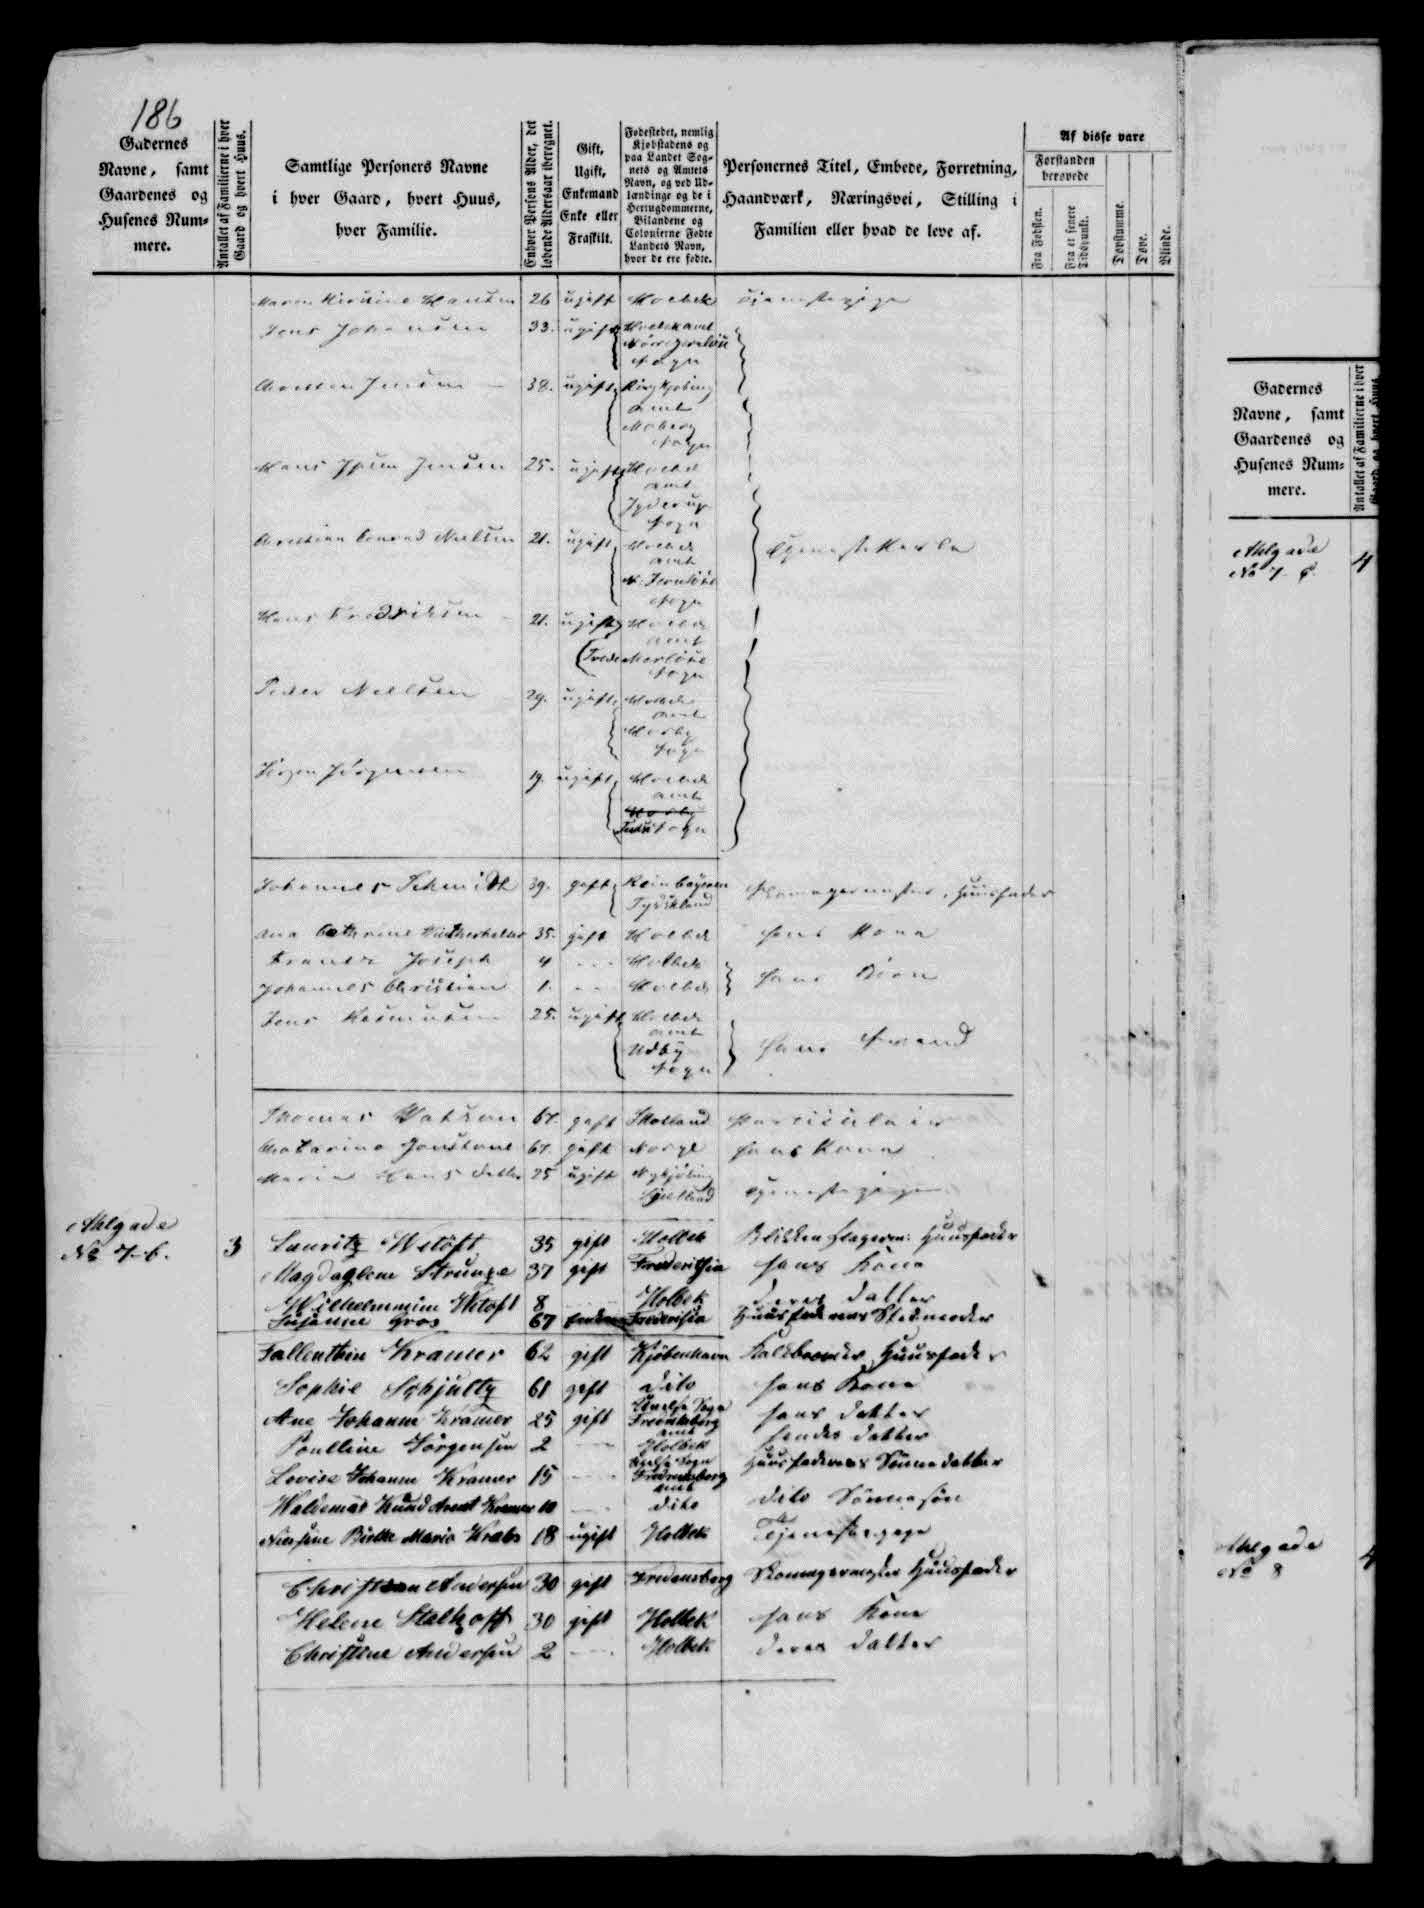 186
Gadernes Navne, samt Gaardenes og Husenes Nummere.
Antallet af Familierne i hver Gaard og hvert Huus.
Samtlige Personers Navne i hver Gaard, hvert Huus, hver Familie.
Enhver Persons Alder, det løbende Aldersaar iberegnet.
Gift, Ugift, Enkemand Enke eller Fraskilt.
Fødestedet, nemlig Kjøbstadens og paa Landet Sognets og Amtets Navn, og ved Udlændinge og de i Hertugdommerne, Bilandene og Colonierne Fødte Landets Navn, hvor de ere fødte.
Personernes Titel, Embede, Forretning, Haandværk, Næringsvei, Stilling i Familien eller hvad de leve af.
Af disse vare
Forstanden berøvede
Fra Fødslen.
Fra et senere Tidspunkt.
Døvstumme.
Døve.
Blinde.
Maren Kirstine Hansen 26 ugift Holbek Tjenestepige
Jens Johansen 33. ugift Holbek amt Nørre Jernløse Sogn
Christen Jensen 38. ugift Ringkjøbing amt Moberg Sogn
Hans Jensen 25. ugift Holbek amt Jyderup Sogn
Christian Conrad Nielsen 21. ugift Holbek amt N. Jernløse Sogn Tjenestekarle
Hans Fredriksen 21. ugift Holbek amt Merløse Sogn
Peder Nielsen 29. ugift Holbek amt Sogn
Jørgen Jørgensen 19. ugift Holbek amt Sogn
Johannes Schmidt 39. gift Rein Bayeren Tydskland Skomagermester, Huusfader
Ana Cathrine 35. gift Holbek hans Kone
Frantz Joseph 4 Holbek
Johannes Christian 1. Holbek hans Børn
Jens Rasmusen 25. ugift Holbek amt Udby Sogn hans Svend
Thomas Watson 67. gift Skotland Particulair
Chatarina Jonstone 67 gift Norge hans Kone
Maria Hansdatter 25 ugift Nykjøbing Sjelland Tjenestepige
Ahlgade No 7-6. 3 Lauritz Wetøft 35 gift Holbek Blikkenslagerm. Huusfader
Magdaglene Strunge 37 gift Fredericia hans Kone
Wilhelmmine Wetøft 8 Holbek deres datter
Susanne Gros 67 Fredericia Huusfaderens Stedmoder
Fallenthin Kramer 62 gift Kjøbenhavn Kalkbrænder Huusfader
Sophie Schjultz 61 gift dito hans Kone
Ane Johanne Kramer 25 gift Sogn Fredriksborg amt hans datter
Poulline Jørgensen 2 Holbek hendes datter
Lovise Johanne Kramer 15 Sogn Fredriksborg amt Huusfaderens Sønnedatter
Waldemar Knud Arent Kramer 10 dito dito Sønnesøn
Niesine Birthe Marie Krabs 18 ugift Holbek Tjenestepige
Christian Andersen 30 gift Fredensborg Skomagermester Huusfader
Helene Stalhoff 30 gift Holbek hans Kone
Christine Andersen 2 Holbek deres datter
Gadernes Navne, samt Gaardenes og Husenes Nummere.
Antallet af Familierne i hver Gaard og hvert Huus.
Ahlgade No 7 4
Ahlgade No 8 4